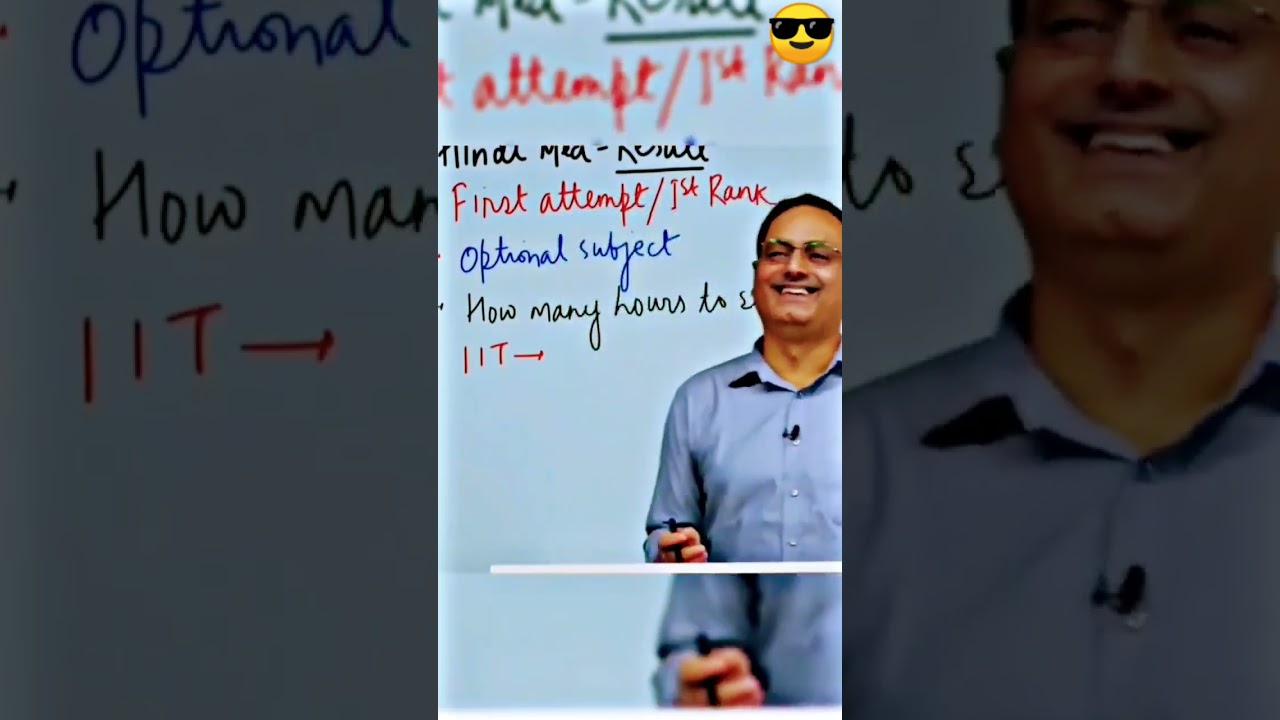 Med - Result
attempt/1st Ran
Hindi Med - Result
First attempt/1st Rank
Optional subject
How many hours to s
IIT →
Optional
How man
IIT →
to s